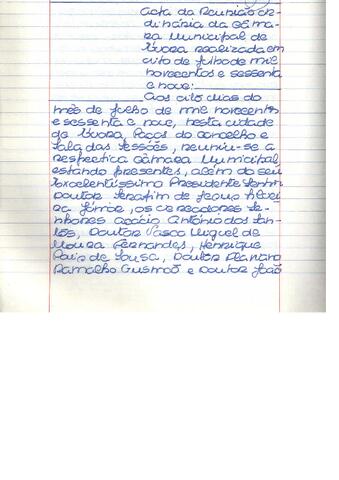 Acta da Reunião or-
dinária da Câma-
ra Municipal de
Évora realizada em
oito de julho de mil
novecentos e sessenta
e nove:
Aos oito dias do
mês de julho de mil novecentos
e sessenta e nove, nesta cidade
de Évora, Paços do Concelho e
Sala das Sessões, reuniu-se a
respectiva Câmara Municipal
estando presentes, além do seu
Excelentíssimo Presidente Senhor
Doutor Serafim de Jesus Silvei
ra Júnior, os vereadores Se-
nhores Acácio António dos San-
tos, Doutor Vasco Miguel de
Moura Fernandes, Henrique
Pair de Sousa, Doutor Mariano
Ramalho Gusmão e Doutor João